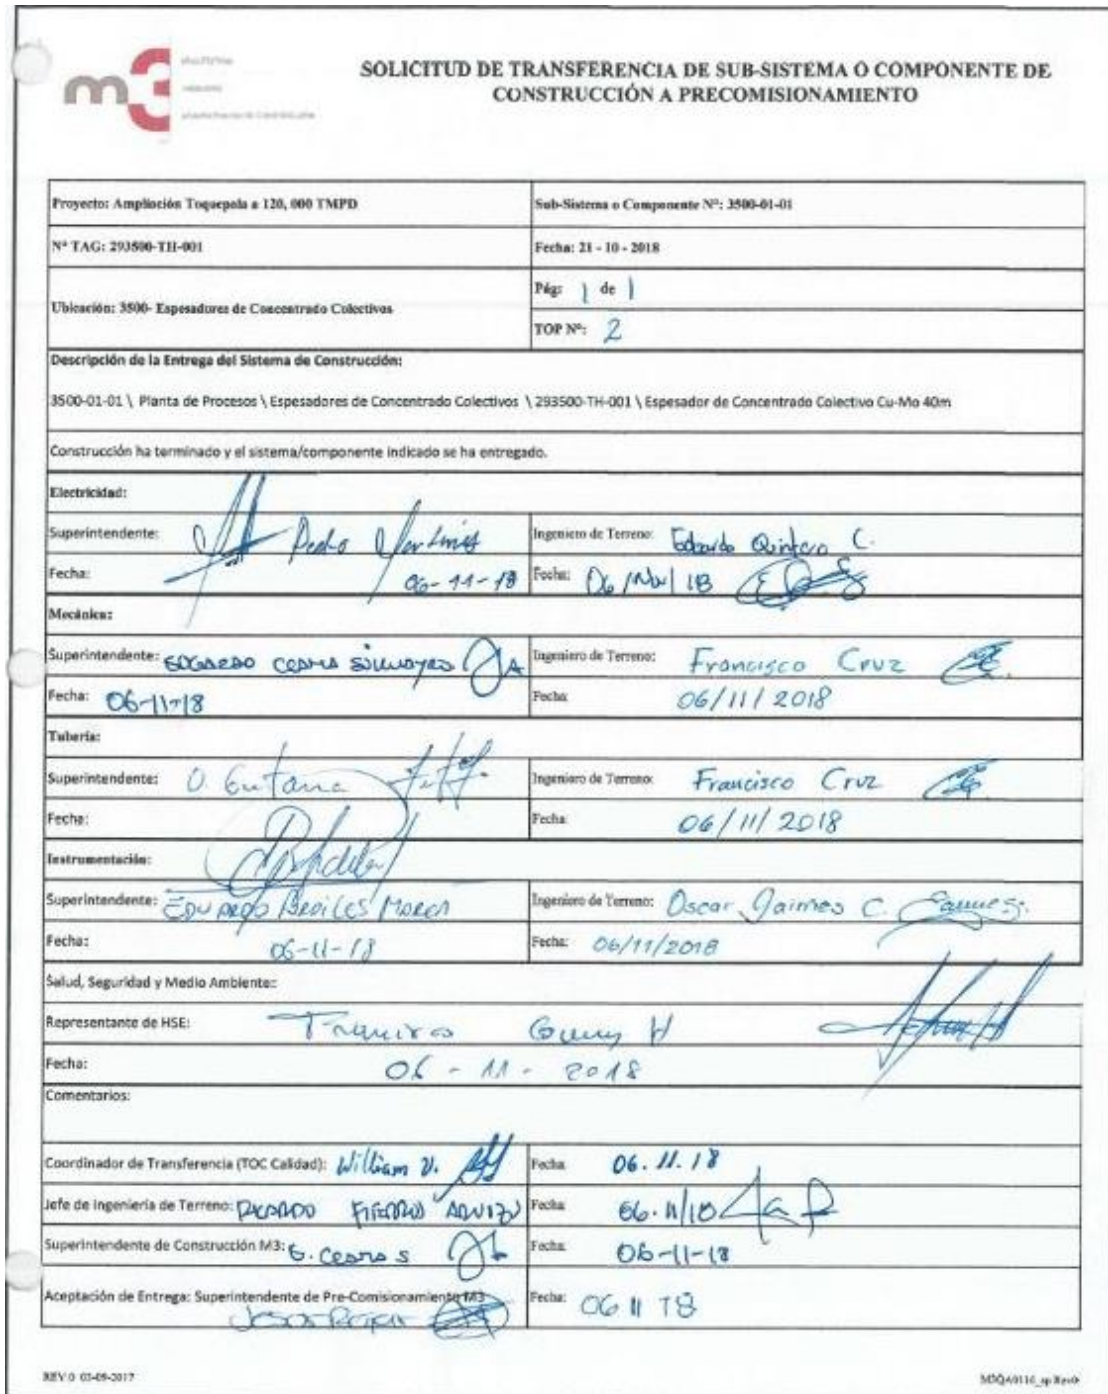 m3
SOLICITUD DE TRANSFERENCIA DE SUB-SISTEMA O COMPONENTE DE
CONSTRUCCIÓN A PRECOMISIONAMIENTO
Proyecto: Ampliación Toquepala a 120, 000 TMPD
Sub-Sistema o Componente Nº: 3500-01-01
Nº TAG: 293500-TH-001
Fecha: 21 - 10 - 2018
Ubicación: 3500- Espesadores de Concentrado Colectivos
Pág: 1 de 1
TOP Nº: 2
Descripción de la Entrega del Sistema de Construcción:
3500-01-01 \ Planta de Procesos \ Espesadores de Concentrado Colectivos \ 293500-TH-001 \ Espesador de Concentrado Colectivo Cu-Mo 40m
Construcción ha terminado y el sistema/componente indicado se ha entregado.
Electricidad:
Superintendente: Pedro Martinis
Ingeniero de Terreno: Eduardo Quintero C.
Fecha: 06-11-18
Fecha: 06/Nov/18
Mecánica:
Superintendente: EDGARDO
Ingeniero de Terreno: Francisco Cruz
Fecha: 06-11-18
Fecha: 06/11/2018
Tubería:
Superintendente: O.
Ingeniero de Terreno: Francisco Cruz
Fecha:
Fecha: 06/11/2018
Instrumentación:
Superintendente: EDUARDO
Ingeniero de Terreno: Oscar Jaimes C.
Fecha: 06-11-18
Fecha: 06/11/2018
Salud, Seguridad y Medio Ambiente::
Representante de HSE:
Fecha: 06 - 11 - 2018
Comentarios:
Coordinador de Transferencia (TOC Calidad): William V.
Fecha: 06.11.18
Jefe de Ingeniería de Terreno: RICARDO FIERRO
Fecha: 06.11/18
Superintendente de Construcción M3:
Fecha: 06-11-18
Aceptación de Entrega: Superintendente de Pre-Comisionamiento M3
Fecha: 06 11 18
REV.0 03-09-2017